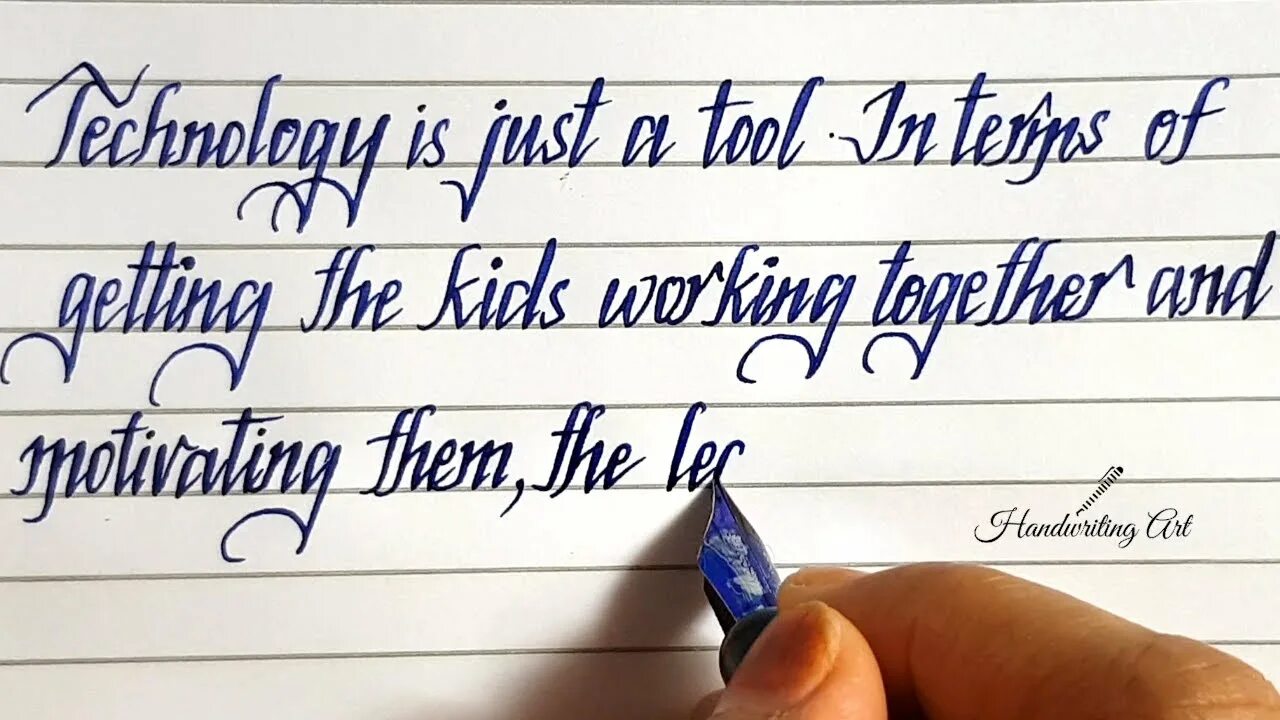 Technology is just a tool. In terms of
getting the kids working together and
motivating them, the lec
Handwriting Art